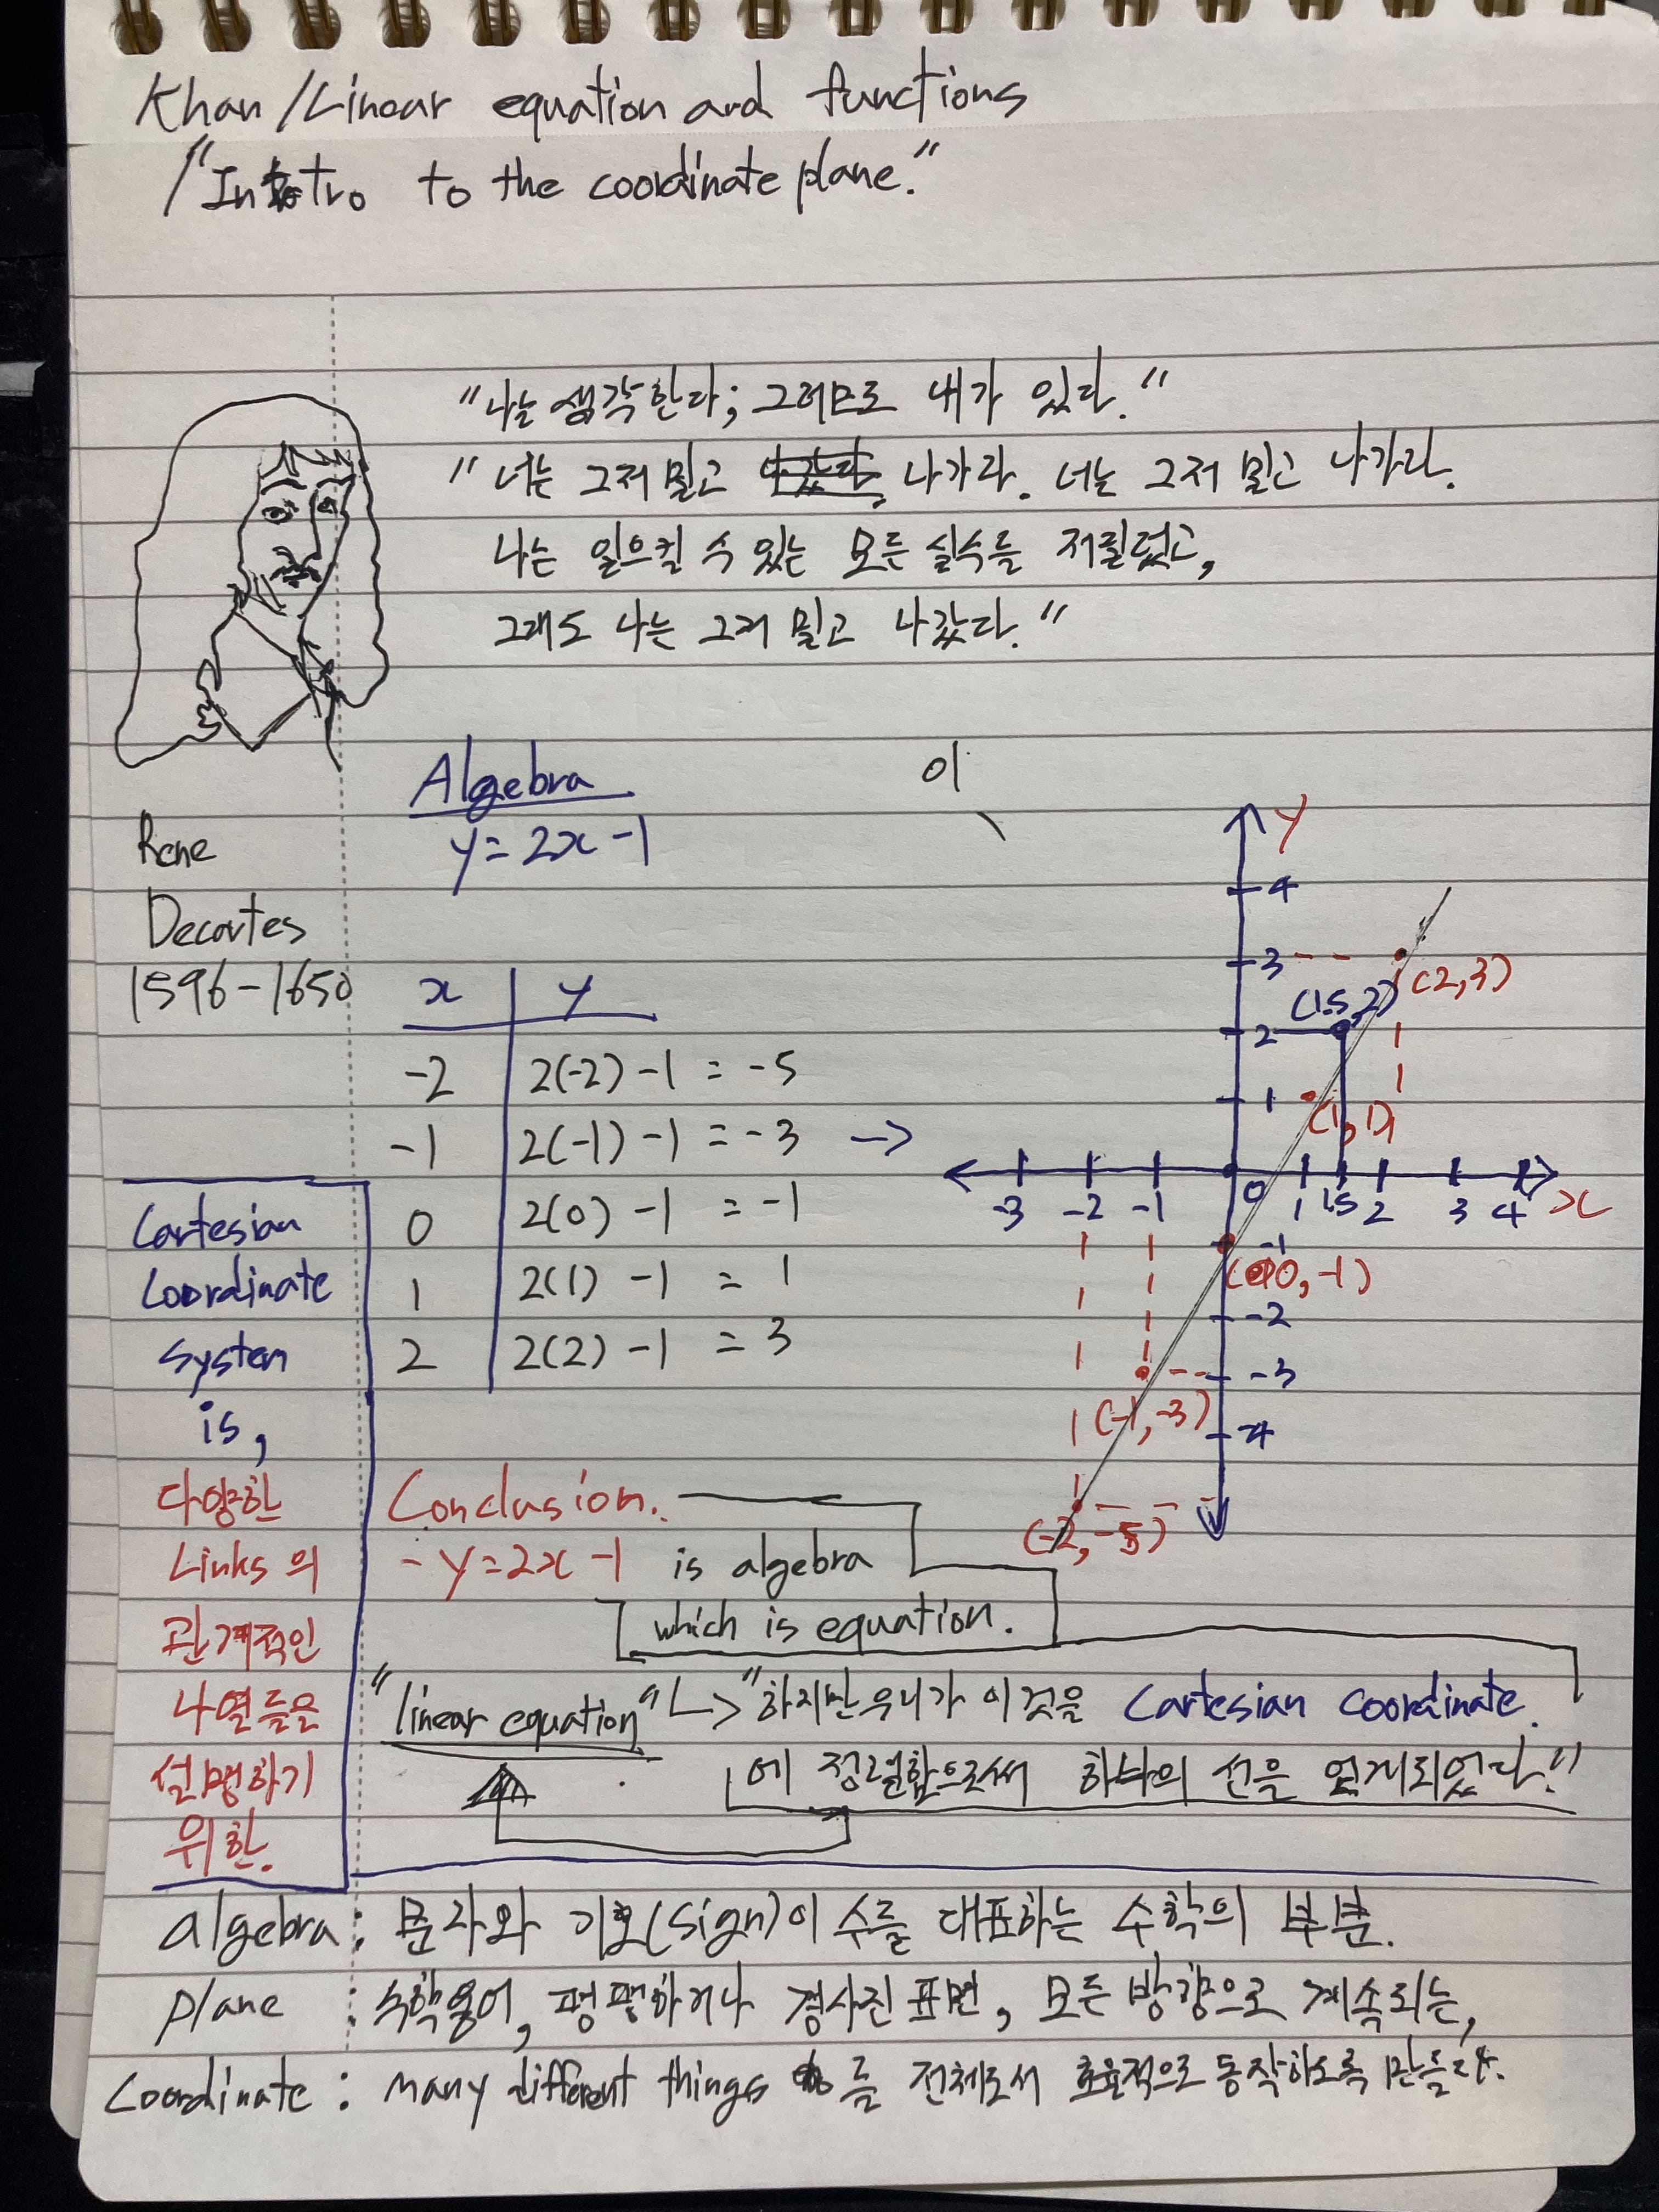 Khan/Linear equation and functions
/"Intro to the coordinate plane."
"나는 생각한다; 그러므로 내가 있다."
"너는 그저 밀고 나가라. 너는 그저 밀고 나가라.
나는 일으킬 수 있는 모든 실수를 저질렀고,
그래도 나는 그저 밀고 나갔다."
이
Rene
Decartes
1596-1650
Algebra
y=2x-1
x y
-2 2(-2)-1 = -5
-1 2(-1)-1 = -3 ->
0 2(0)-1 = -1
1 2(1)-1 = 1
2 2(2)-1 = 3
y
4
3
(2,3)
(1.5,2)
2
1
(1,1)
-3 -2 -1 0 1 1.5 2 3 4 x
-1
(0,-1)
-2
-3
(-1,-3)
-4
(-2,-5)
Cartesian
Coordinate
System
is,
다양한
Links의
관계적인
나열들을
설명하기
위한.
Conclusion.
-y=2x-1 is algebra
which is equation.
"linear equation" "하지만 우리가 이것을 Cartesian Coordinate.
에 정렬함으로써 하나의 선을 얻게되었다."
algebra: 문자와 기호(sign)이 수를 대표하는 수학의 부분.
plane : 수학용어, 평평하거나 경사진 표면, 모든 방향으로 계속되는,
Coordinate: many different things 를 전체로서 효율적으로 동작하도록 만들다.